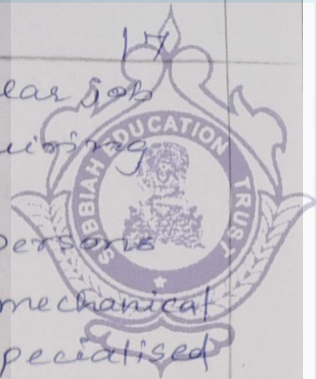 17
lar job
uiring
SUBBIAH EDUCATION TRUST
persons
mechanical
specialised